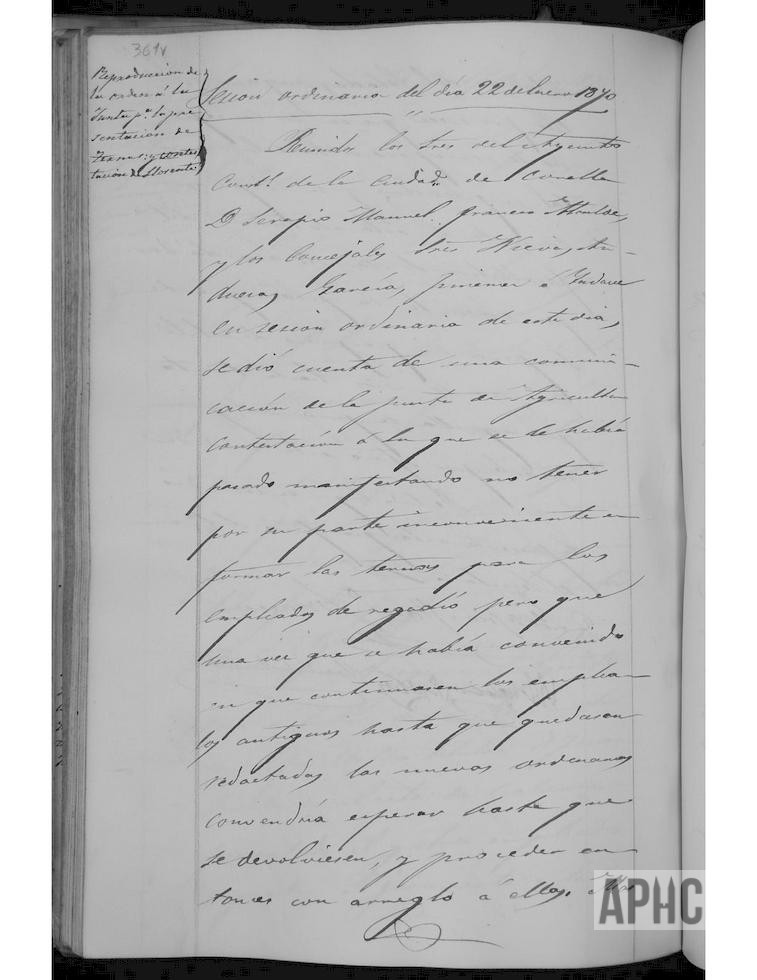 361v
Reproduccion de
la orden á la
Junta pª. la pre
sentacion de
ternas y contes
tacion de
Sesion ordinaria del dia 22 de Enero 1870
Reunidos los Sres del Ayunto
Constl. de la Ciudad de Corella
D Serapio Manuel primero Alcalde,
y los Concejales Sres
García, Jimenez é
en sesion ordinaria de este dia,
se dió cuenta de una comuni-
cación de la junta de Agricultª
contestación á la que se le había
pasado manifestando no tener
por su parte inconveniente en
formar las ternas para los
empleados de regadío pero que
una vez que se había convenido
en que continuasen los emplea-
los antiguos hasta que quedasen
redactadas las nuevas ordenanzas
convendría esperar hasta que
se devolviesen, y proceder en-
tonces con arreglo á ellas.
APHC